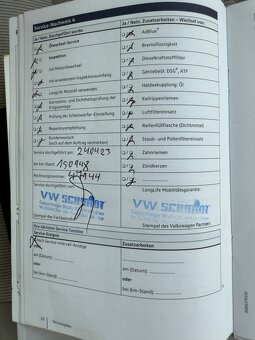 Service-Nachweis 4
Ja / Nein. Durchgeführt wurde:
Ölwechsel-Service
Inspektion
mit Motorölwechsel
mit erweitertem Inspektionsumfang
LongLife Motoröl verwendet
Korrosions- und Dichtheitsprüfung der
Erdgasanlage
Prüfung der Scheinwerfer-Einstellung
Reparaturempfehlung
Kundenwunsch
(noch auf dem Auftrag vermerken)
Service durchgeführt am: 240423
bei km-Stand: 150948
Rechnungsnummer:
Service durchgeführt von:
VW SCHMIDT
Stempel des Fachbetriebs
Ja / Nein. Zusatzarbeiten - Wechsel von:
AdBlue
Bremsflüssigkeit
Dieselkraftstofffilter
Getriebeöl: DSG®, ATF
Haldexkupplung: Öl
Keilrippenriemen
Luftfiltereinsatz
Reifenfüllflasche (Dichtmittel)
Staub- und Pollenfiltereinsatz
Zahnriemen
Zündkerzen
LongLife Mobilitätsgarantie:
VW SCHMIDT
Stempel des Volkswagen Partners
Ihre nächsten Service-Termine
Service-Ereignis
nach Service-Intervall-Anzeige
am (Datum)
oder
bei (km-Stand):
Zusatzarbeiten
am (Datum):
oder
bei (km-Stand):
12
Serviceplan